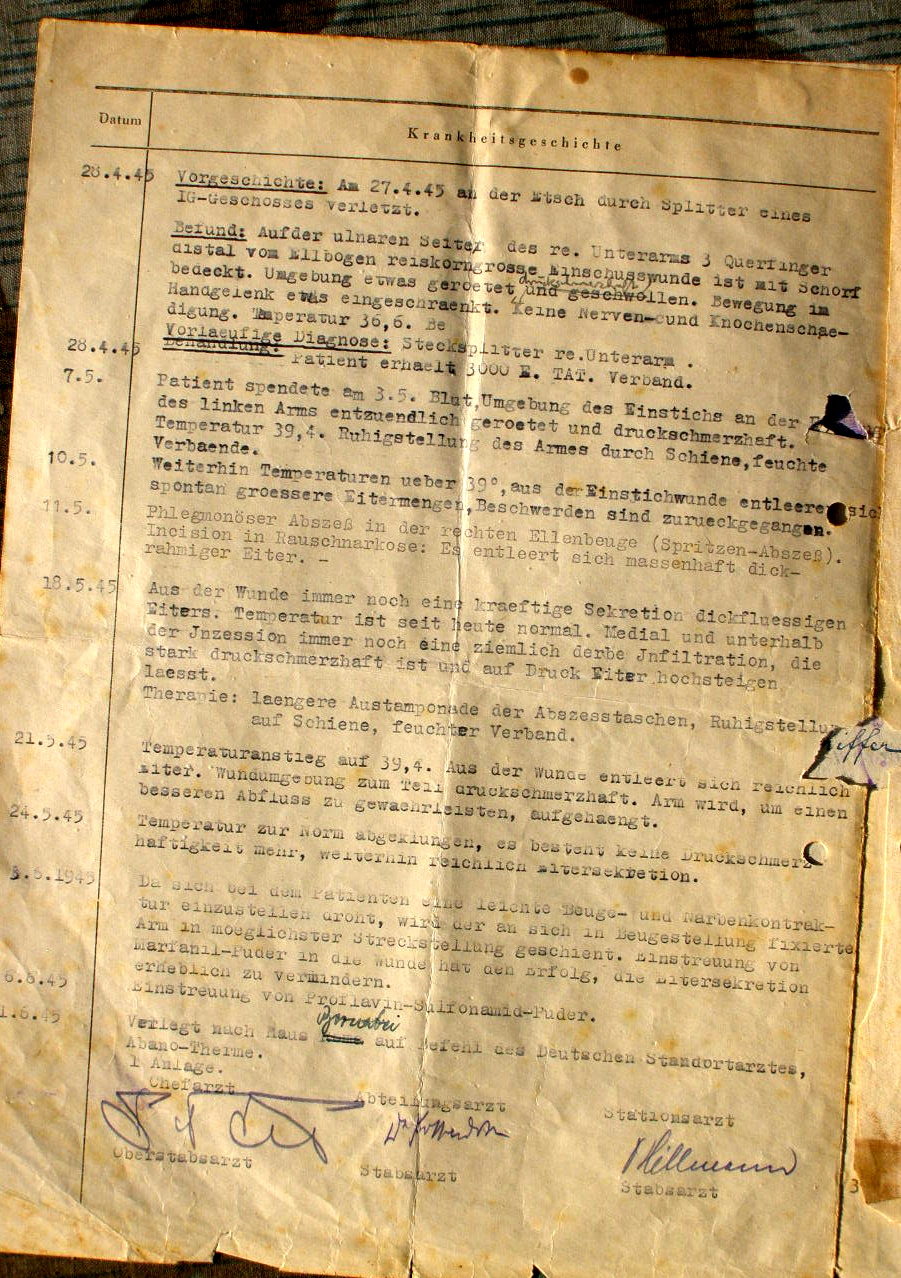 Datum
Krankheitsgeschichte
28.4.45 Vorgeschichte: Am 27.4.45 an der Etsch durch Splitter eines
IG-Geschosses verletzt.
Befund: Aufder ulnaren Seiter des re. Unterarms 3 Querfinger
distal vom Ellbogen reiskorngrosse Einschusswunde ist mit Schorf
bedeckt. Umgebung etwas geroetet und geschwollen. Bewegung im
Handgelenk etwas eingeschraenkt. Keine Nerven-und Knochenschae-
digung. Temperatur 36,6. Be
Vorlaeufige Diagnose: Stecksplitter re.Unterarm .
28.4.45 Behandlung: Patient erhaelt 3000 E. TAT. Verband.
7.5. Patient spendete am 3.5. Blut,Umgebung des Einstichs an der
des linken Arms entzuendlich geroetet und druckschmerzhaft.
Temperatur 39,4. Ruhigstellung des Armes durch Schiene,feuchte
Verbaende.
10.5. Weiterhin Temperaturen ueber 39°,aus der Einstichwunde entleeren sich
spontan groessere Eitermengen,Beschwerden sind zurueckgegangen.
11.5. Phlegmonöser Abszeß in der rechten Ellenbeuge (Spritzen-Abszeß).
Incision in Rauschnarkose: Es entleert sich massenhaft dick-
rahmiger Eiter. -
18.5.45 Aus der Wunde immer noch eine kraeftige Sekretion dickfluessigen
Eiters. Temperatur ist seit heute normal. Medial und unterhalb
der Jnzession immer noch eine ziemlich derbe Jnfiltration, die
stark druckschmerzhaft ist und auf Druck Eiter hochsteigen
laesst.
Therapie: laengere Austamponade der Abszesstaschen, Ruhigstellu
auf Schiene, feuchter Verband.
21.5.45 Temperaturanstieg auf 39,4. Aus der Wunde entleert sich reichlich
Eiter. Wundumgebung zum Teil druckschmerzhaft. Arm wird, um einen
besseren Abfluss zu gewaehrleisten, aufgehaengt.
24.5.45 Temperatur zur Norm abgeklungen, es besteht keine Druckschmerz-
haftigkeit mehr, weiterhin reichlich Eitersekretion.
3.6.1945 Da sich bei dem Patienten eine leichte Beuge- und Narbenkontrak-
tur einzustellen droht, wird der an sich in Beugestellung fixierte
Arm in moeglichster Streckstellung geschient. Einstreuung von
Marfanil-Puder in die Wunde hat den Erfolg, die Eitersekretion
erheblich zu vermindern.
6.6.45 Einstreuung von Proflavin-Sulfonamid-Puder.
1.6.45 Verlegt nach Haus auf Befehl des Deutschen Standortarztes,
Abano-Therme.
1 Anlage.
Chefarzt Abteilungsarzt Stationsarzt
Hillmann
Oberstabsarzt Stabsarzt Stabsarzt
3